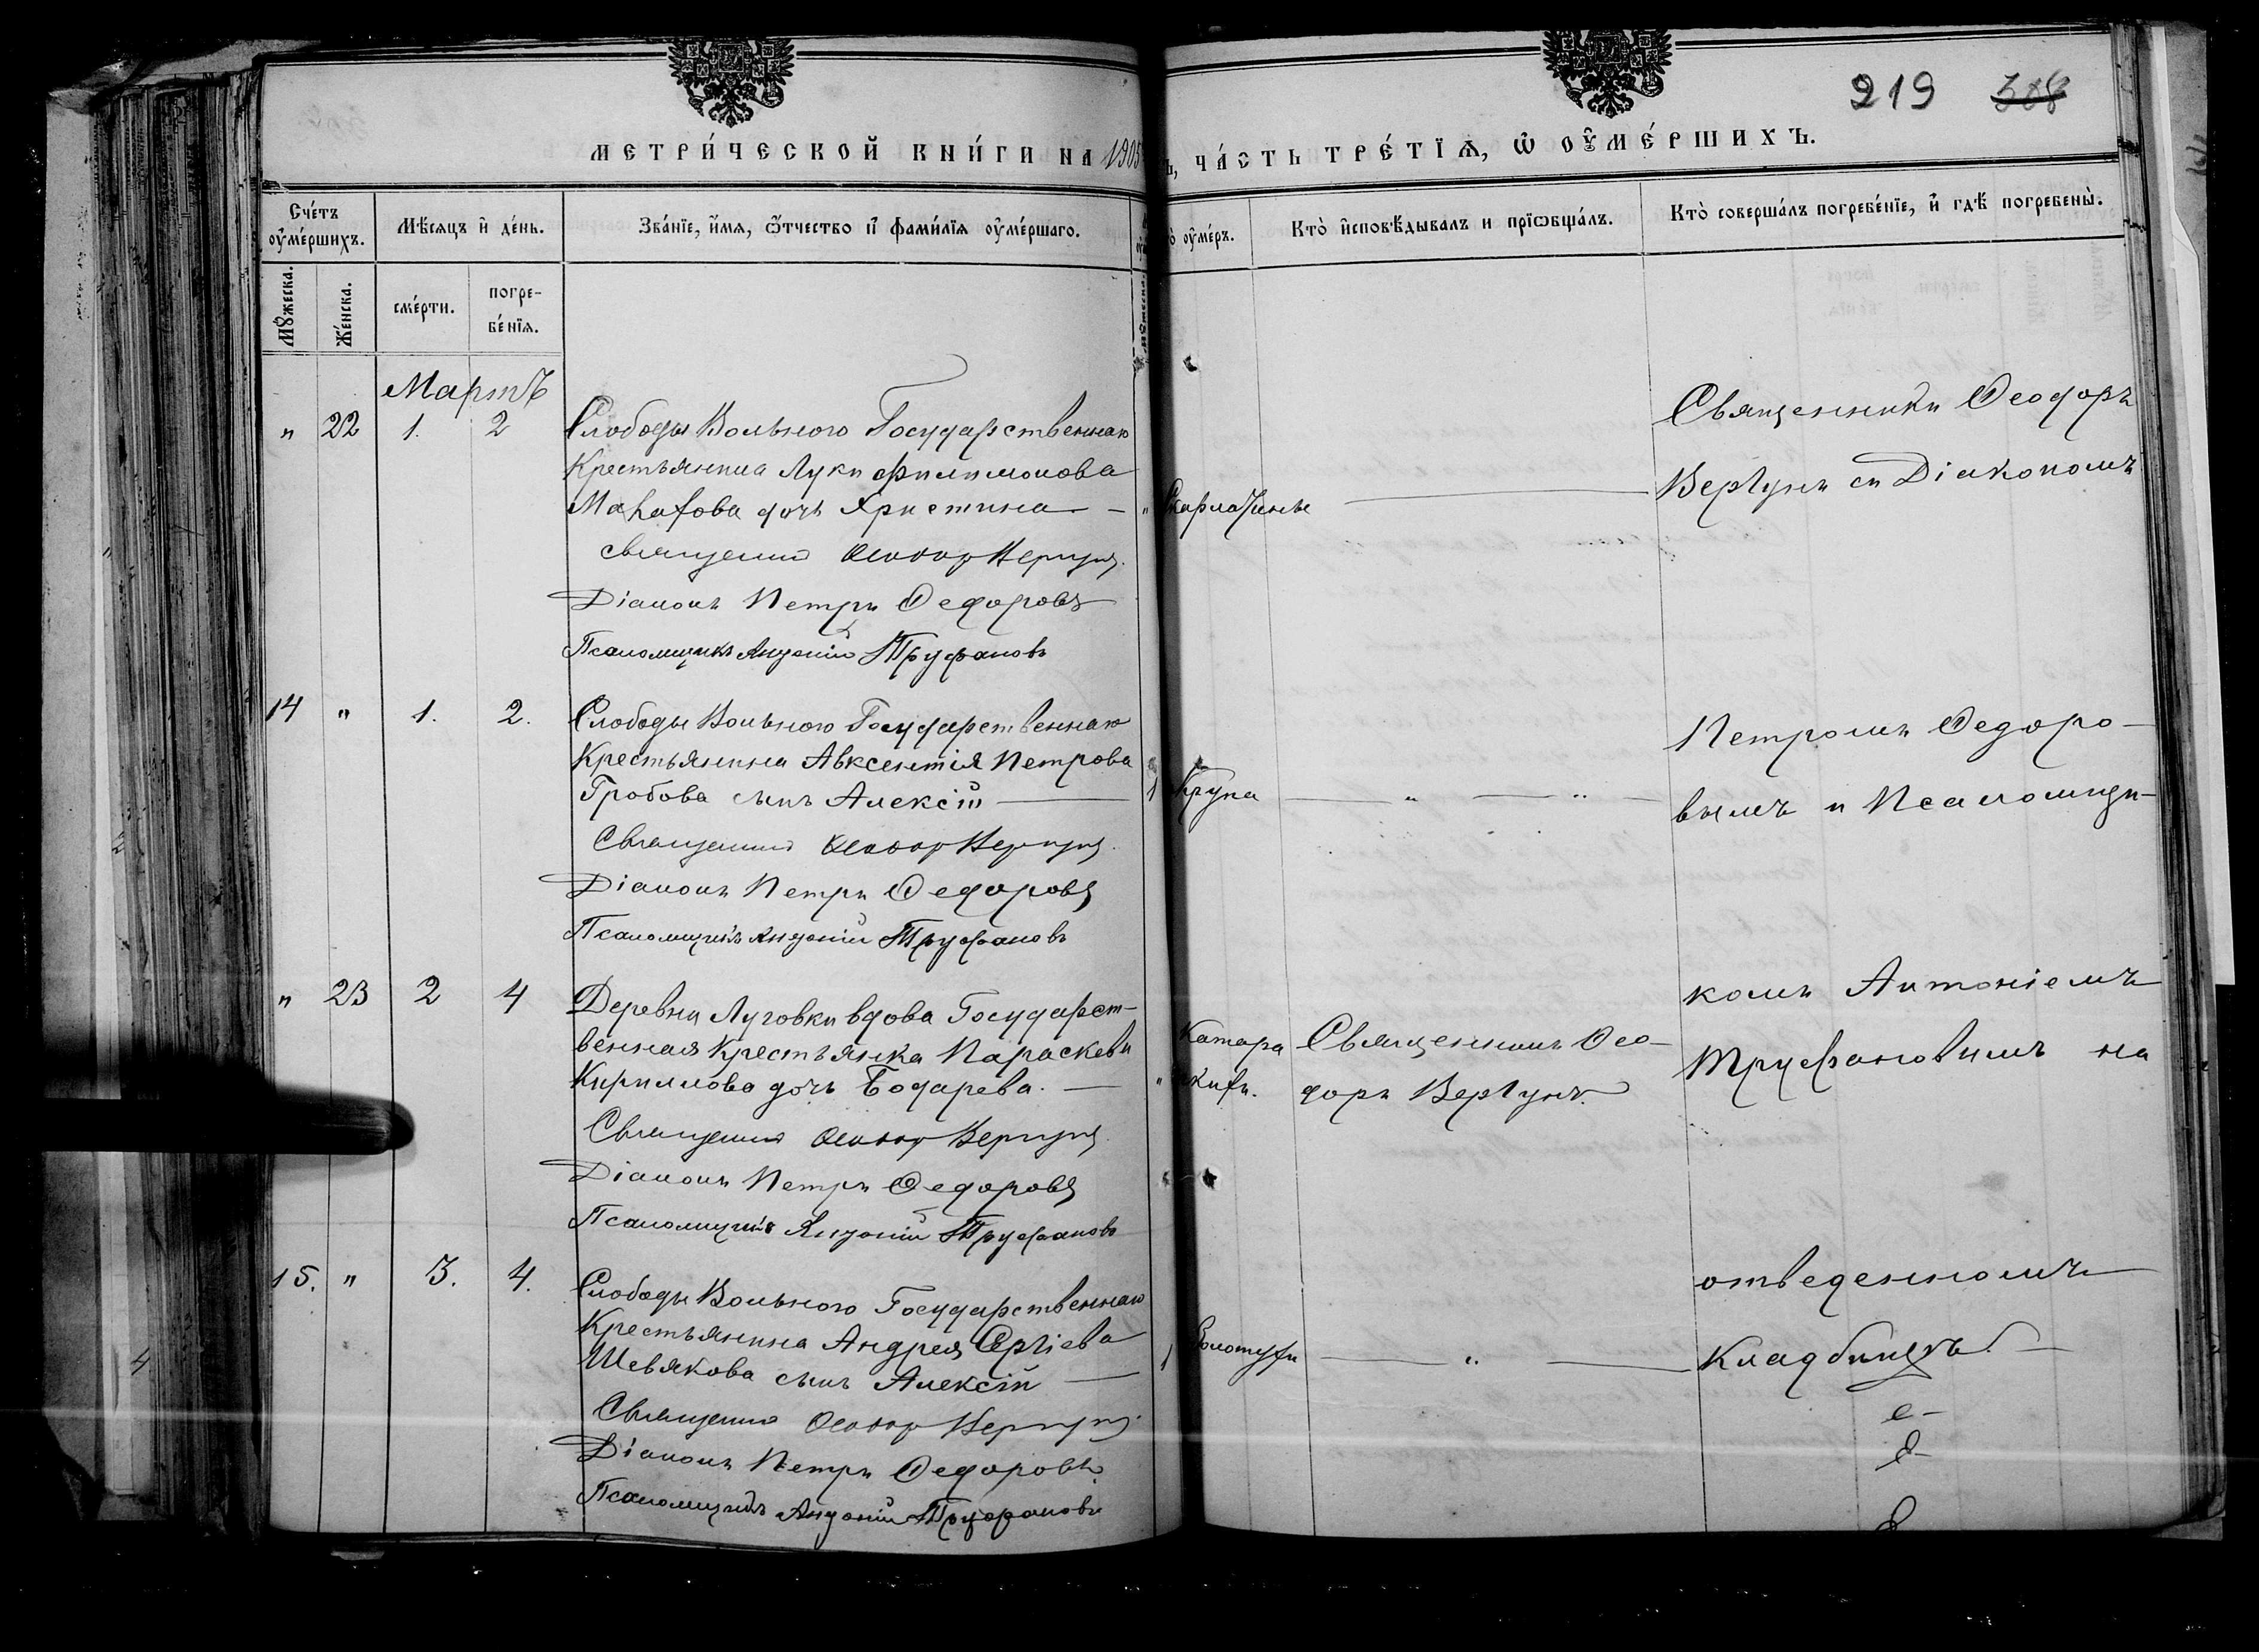 МЕТРИ́ЧЕСКОЙ КНИ́ГИ НА 1905
Ъ, ЧА́СТЬ ТРЕ́ТІѦ, Ѡ҆ ОУ҆МЕ́РШИХЪ.
219 308
Сче́тъ оу҆ме́ршихъ.
Мѣ́сяцъ и҆ де́нь.
Зва́нїе, и҆́мя, ѻ҆́тчество и҆ фами́лїя оу҆ме́ршаго.
о̀ оу҆ме́ръ.
Кто̀ и҆сповѣ́дывалъ и прїѡбща́лъ.
Кто̀ соверша́лъ погребе́нїе, и҆ гдѣ̀ погребены̀.
Мꙋ́жеска.
Же́нска.
сме́рти.
погре-
бе́нїя.
Мартъ
" 22 1. 2
Слободы Вольного Государственнаго
Крестьянина Луки Филимонова
Макарова дочь Христина — " Скарлатины
Священникъ Ѳеодоръ Вергунъ
Діаконъ Петръ Ѳедоровъ
Псаломщикъ Антоній Труфановъ
Священникъ Ѳеодоръ
Вергунъ съ Діакономъ
14 " 1. 2.
Слободы Вольного Государственнаго
Крестьянина Авксентія Петрова
Гробова сынъ Алексій — 1 Крупа — " — " —
Священникъ Ѳеодоръ Вергунъ
Діаконъ Петръ Ѳедоровъ
Псаломщикъ Антоній Труфановъ
Петромъ Ѳедоро-
вымъ и Псаломщи-
" 23 2 4
Деревни Луговки вдова Государст-
венная Крестьянка Параскева
Кириллова дочь Бодарева. — "
Священникъ Ѳеодоръ Вергунъ
Діаконъ Петръ Ѳедоровъ
Псаломщикъ Антоній Труфановъ
Катара
Священникъ Ѳео-
доръ Вергунъ.
комъ Антоніемъ
Труфановымъ на
15. " 3. 4.
Слободы Вольного Государственнаго
Крестьянина Андрея Сергіева
Шевякова сынъ Алексій — 1 Золотухи — " —
Священникъ Ѳеодоръ Вергунъ
Діаконъ Петръ Ѳедоровъ
Псаломщикъ Антоній Труфановъ
отведенномъ
Кладбищѣ. —